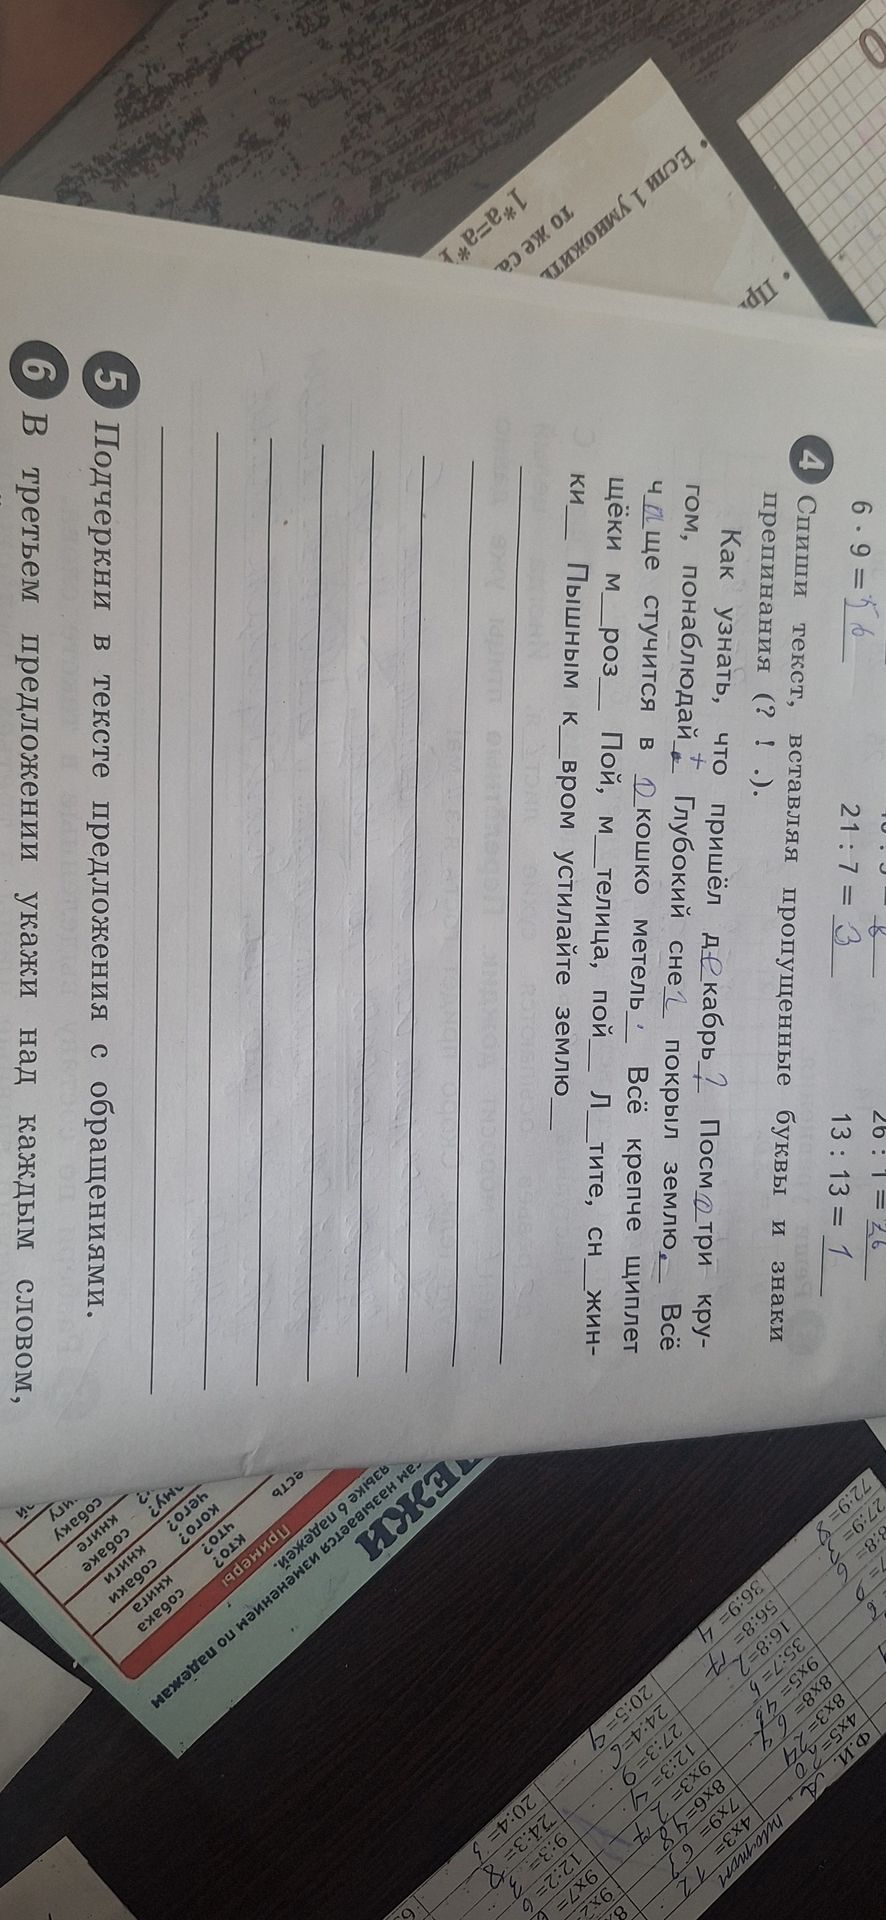 6 · 9 =
21 : 7 = 3
26 : 1 = 26
13 : 13 = 1
4 Спиши текст, вставляя пропущенные буквы и знаки
препинания (? ! .).
Как узнать, что пришёл декабрь? Посмотри кру-
гом, понаблюдай. Глубокий снег покрыл землю. Всё
чаще стучится в окошко метель__ Всё крепче щиплет
щёки м__роз__ Пой, м__телица, пой__ Л__тите, сн__жин-
ки__ Пышным к__вром устилайте землю__
5 Подчеркни в тексте предложения с обращениями.
6 В третьем предложении укажи над каждым словом,
• Если 1 умножить
то же са
1*а=а*1
• Пр
ДЕЖИ
сам называется изменением по падежам
языке 6 падежей.
Примеры
есть
кто?
что?
собака
книга
кого?
чего?
собаки
книги
ому?
собаке
книге
собаку
нигу
Ф.И.
4х5= 20
8х3= 24
8х8= 64
9х5= 45
35:7= 5
16:8= 2
56:8= 7
36:9= 4
27:9=
72:9= 8
4х3= 12
7х9= 63
8х6= 48
9х3= 27
12:3= 4
27:3= 9
24:4= 6
20:5= 4
9х7=
12:2= 6
9:3= 3
24:3= 8
20:4= 5